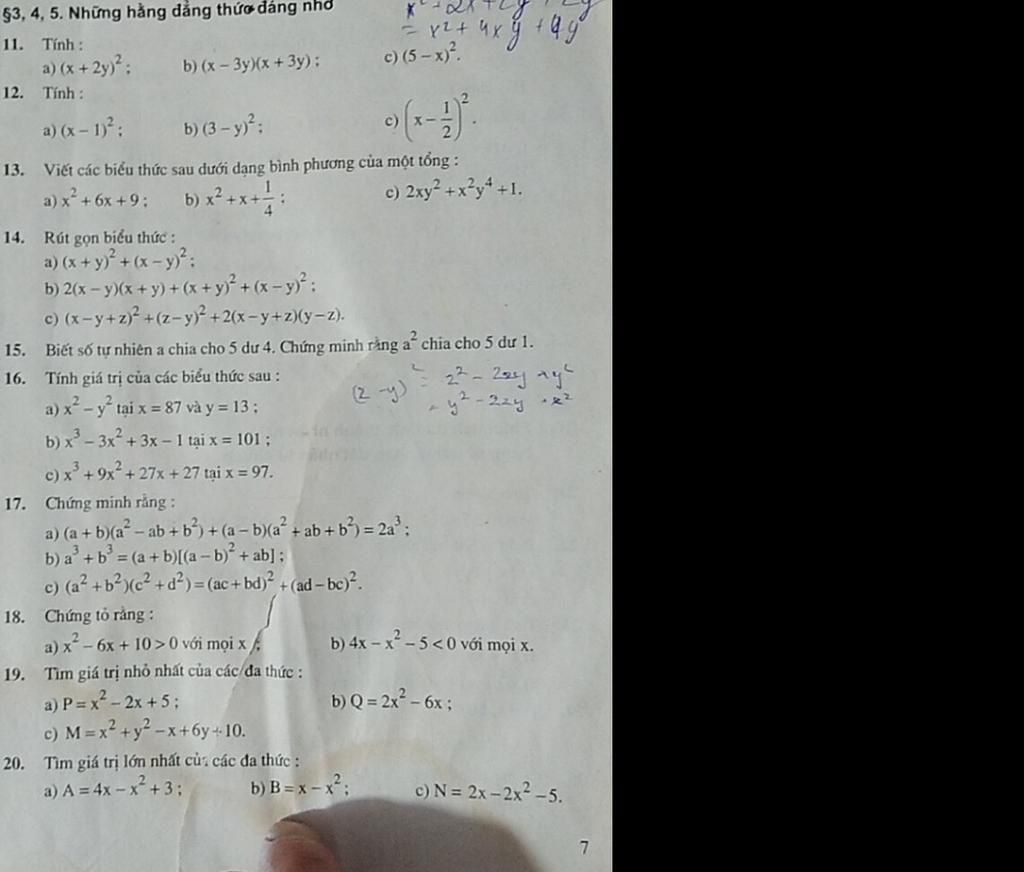 §3, 4, 5. Những hằng đẳng thức đáng nhớ
= x² + 4xy + 4y
11. Tính :
a) (x + 2y)² ; b) (x – 3y)(x + 3y) ; c) (5 – x)².
12. Tính :
a) (x – 1)² ; b) (3 – y)² ; c) (x – 1/2)².
13. Viết các biểu thức sau dưới dạng bình phương của một tổng :
a) x² + 6x + 9 ; b) x² + x + 1/4 ; c) 2xy² + x²y⁴ + 1.
14. Rút gọn biểu thức :
a) (x + y)² + (x – y)² ;
b) 2(x – y)(x + y) + (x + y)² + (x – y)² ;
c) (x – y + z)² + (z – y)² + 2(x – y + z)(y – z).
15. Biết số tự nhiên a chia cho 5 dư 4. Chứng minh rằng a² chia cho 5 dư 1.
16. Tính giá trị của các biểu thức sau :
(z – y)² = z² – 2zy + y²
= y² – 2zy + z²
a) x² – y² tại x = 87 và y = 13 ;
b) x³ – 3x² + 3x – 1 tại x = 101 ;
c) x³ + 9x² + 27x + 27 tại x = 97.
17. Chứng minh rằng :
a) (a + b)(a² – ab + b²) + (a – b)(a² + ab + b²) = 2a³ ;
b) a³ + b³ = (a + b)[(a – b)² + ab] ;
c) (a² + b²)(c² + d²) = (ac + bd)² + (ad – bc)².
18. Chứng tỏ rằng :
a) x² – 6x + 10 > 0 với mọi x ; b) 4x – x² – 5 < 0 với mọi x.
19. Tìm giá trị nhỏ nhất của các đa thức :
a) P = x² – 2x + 5 ; b) Q = 2x² – 6x ;
c) M = x² + y² – x + 6y + 10.
20. Tìm giá trị lớn nhất của các đa thức :
a) A = 4x – x² + 3 ; b) B = x – x² ; c) N = 2x – 2x² – 5.
7